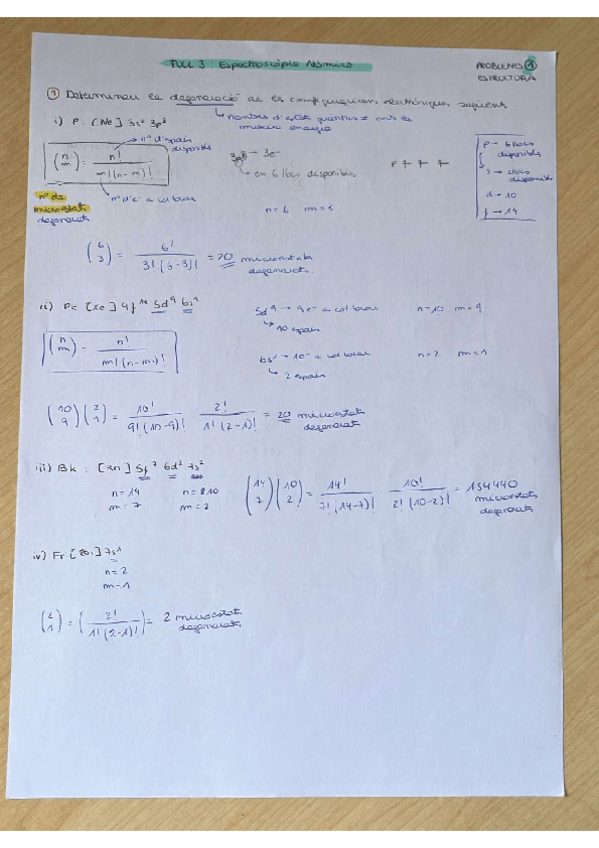 FULL 3 Espectroscòpia Atòmica
PROBLEMES 1
ESTRUCTURA
1 Determineu la degeneració de les configuracions electròniques següents
↳ nombre d'estats quàntics amb la
mateixa energia
i) P: [Ne] 3s² 3p³
nº d'espais
disponibles
(n m) = n! / m!(n-m)!
nº d'e⁻ a col·locar
nº de
microestats
degenerats
3p³ → 3e⁻
↳ en 6 llocs disponibles
n=6 m=3
p → 6 llocs
disponibles
s → 2 llocs
disponibles
d → 10
f → 14
(6 3) = 6! / 3!(6-3)! = 20 microestats
degenerats.
ii) Pt: [Xe] 4f¹⁴ 5d⁹ 6s¹
5d⁹ → 9e⁻ a col·locar n=10 m=9
↳ 10 espais
(n m) = n! / m!(n-m)!
6s¹ → 1e⁻ a col·locar n=2 m=1
↳ 2 espais
(10 9)(2 1) = 10! / 9!(10-9)! 2! / 1!(2-1)! = 20 microestats
degenerats
iii) Bk: [Rn] 5f⁷ 6d² 7s²
n=14 n=10
m=7 m=2
(14 7)(10 2) = 14! / 7!(14-7)! 10! / 2!(10-2)! = 154440
microestats
degenerats
iv) Fr: [Rn] 7s¹
n=2
m=1
(2 1) = 2! / 1!(2-1)! = 2 microestats
degenerats